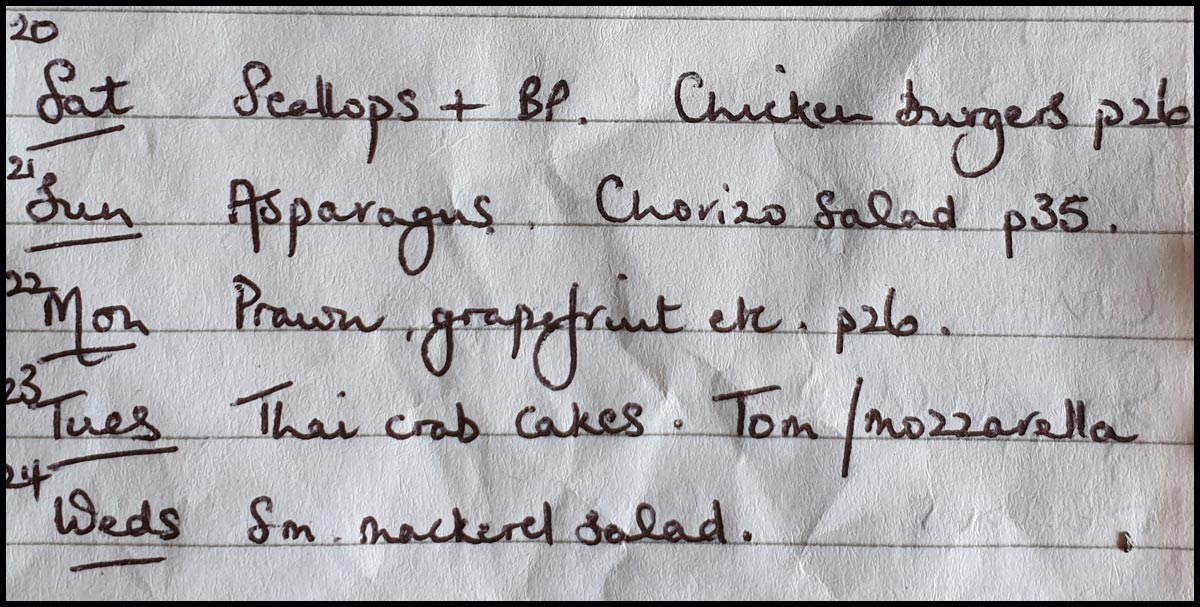 20
Sat Scallops + BP. Chicken burgers p26
21
Sun Asparagus. Chorizo Salad p35.
22
Mon Prawn, grapefruit etc. p26.
23
Tues Thai crab cakes. Tom/mozzarella
24
Weds Sm. mackerel salad.